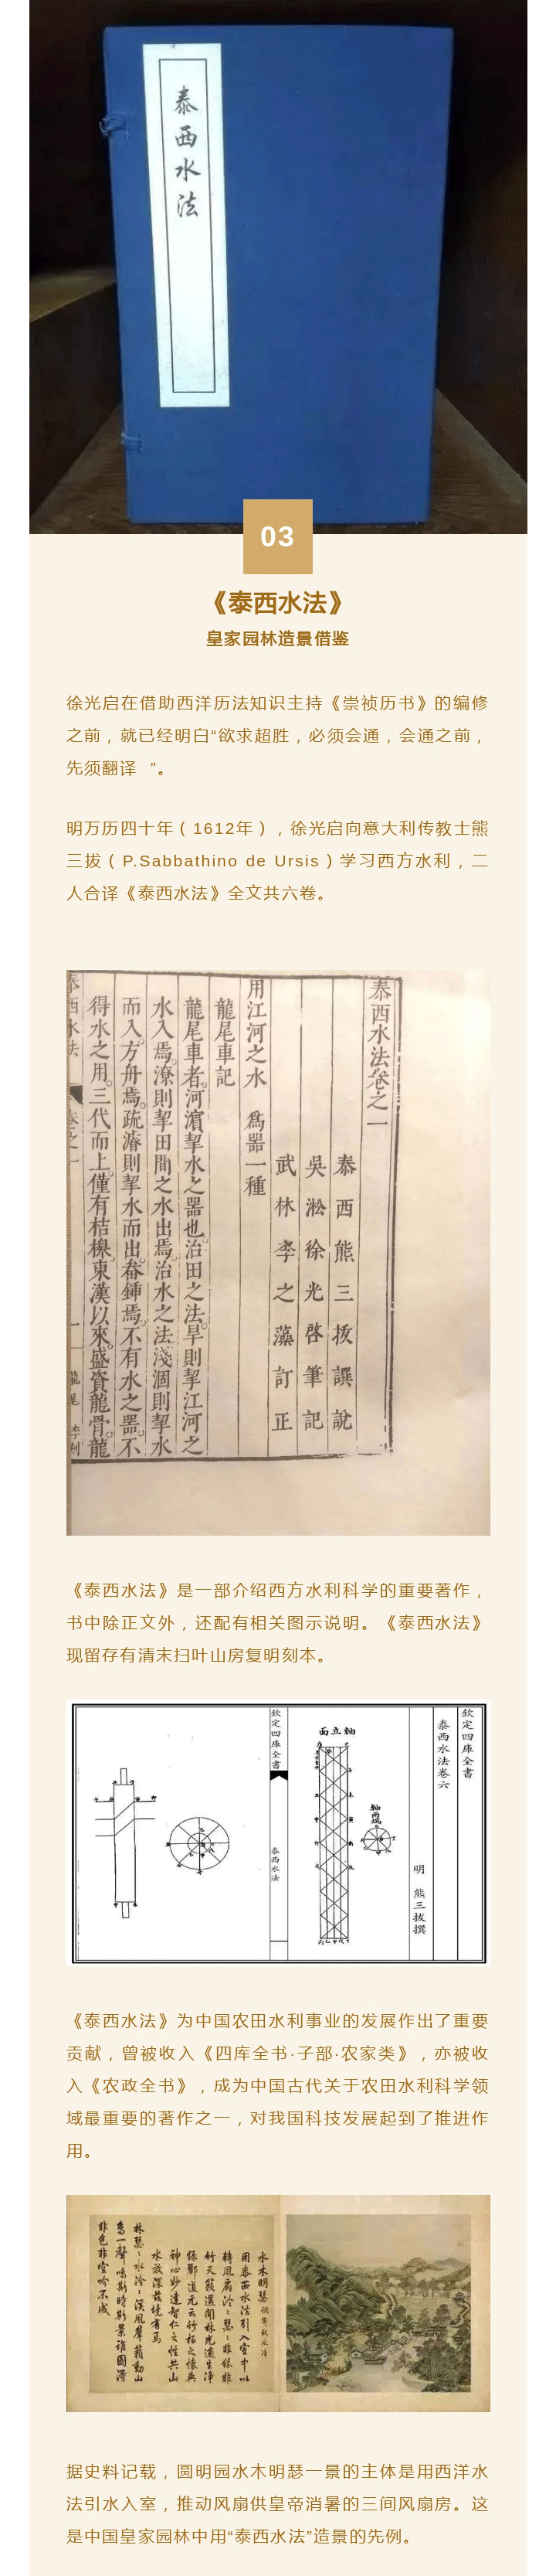 泰西水法
03
《泰西水法》
皇家园林造景借鉴
徐光启在借助西洋历法知识主持《崇祯历书》的编修
之前，就已经明白“欲求超胜，必须会通，会通之前，
先须翻译 ”。
明万历四十年（1612年），徐光启向意大利传教士熊
三拔（P.Sabbathino de Ursis）学习西方水利，二
人合译《泰西水法》全文共六卷。
泰西水法卷之一
泰西熊三拔譔說
吳淞徐光啓筆記
武林李之藻訂正
用江河之水 爲器一種
龍尾車記
龍尾車者。河濱挈水之器也。治田之法。旱則挈江河之
水入焉。潦則挈田間之水出焉。治水之法。淺涸則挈水
而入。方舟焉。疏濬則挈水而出。畚鍤焉。不有水之器。不
得水之用。三代而上。僅有桔槔。東漢以來。盛資龍骨。龍
泰西水法
《泰西水法》是一部介绍西方水利科学的重要著作，
书中除正文外，还配有相关图示说明。《泰西水法》
现留存有清末扫叶山房复明刻本。
欽定四庫全書
泰西水法卷六
明 熊三拔撰
軸立面
軸兩端
欽定四庫全書
泰西水法
《泰西水法》为中国农田水利事业的发展作出了重要
贡献，曾被收入《四库全书·子部·农家类》，亦被收
入《农政全书》，成为中国古代关于农田水利科学领
域最重要的著作之一，对我国科技发展起到了推进作
用。
水木明瑟 調寄秋風清
用泰西水法引入室中以
轉風扇泠泠瑟瑟非絲非
竹天籟遙聞林光逾生淨
綠酈道元云竹柏之懷與
神心妙達智仁之性共山
水效深茲境有焉
林瑟瑟水泠泠溪風羣籟動山
鳥一聲鳴斯時斯景誰圖得
非色非空吟不成
据史料记载，圆明园水木明瑟一景的主体是用西洋水
法引水入室，推动风扇供皇帝消暑的三间风扇房。这
是中国皇家园林中用“泰西水法”造景的先例。